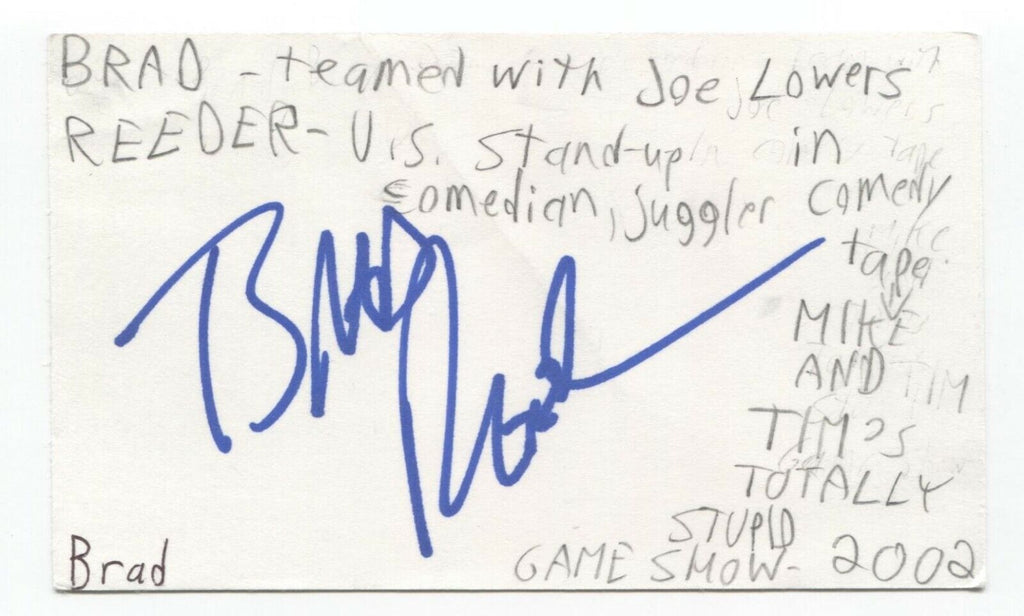 BRAD - teamed with Joe Lowers
REEDER - U.S. stand-up in
comedian, juggler comedy
tape
MIKE
AND
TIM'S
TOTALLY
STUPID
GAME SHOW - 2002
Brad
Brad